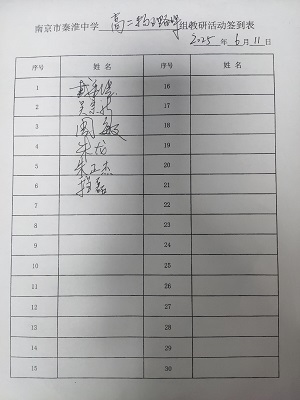 南京市秦淮中学 高二物理 组教研活动签到表
2025 年 6 月 11 日
序号 姓名 序号 姓名
1 16
2 吴 17
3 周敏 18
4 朱龙 19
5 朱正杰 20
6 21
7 22
8 23
9 24
10 25
11 26
12 27
13 28
14 29
15 30